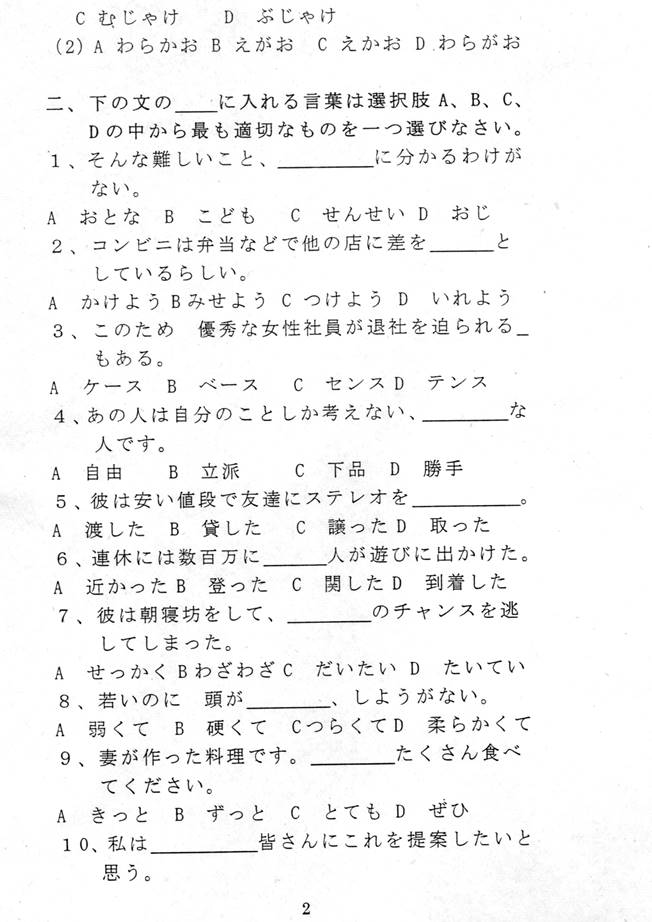 C むじゃけ D ぶじゃけ
(2) A わらかお B えがお C えかお D わらがお
二、下の文の____に入れる言葉は選択肢A、B、C、
Dの中から最も適切なものを一つ選びなさい。
1、そんな難しいこと、_________に分かるわけが
ない。
A おとな B こども C せんせい D おじ
2、コンビニは弁当などで他の店に差を______と
しているらしい。
A かけよう B みせよう C つけよう D いれよう
3、このため 優秀な女性社員が退社を迫られる_
もある。
A ケース B ベース C センス D テンス
4、あの人は自分のことしか考えない、________な
人です。
A 自由 B 立派 C 下品 D 勝手
5、彼は安い値段で友達にステレオを__________。
A 渡した B 貸した C 譲った D 取った
6、連休には数百万に______人が遊びに出かけた。
A 近かった B 登った C 関した D 到着した
7、彼は朝寝坊をして、________のチャンスを逃
してしまった。
A せっかく B わざわざ C だいたい D たいてい
8、若いのに 頭が________、しようがない。
A 弱くて B 硬くて C つらくて D 柔らかくて
9、妻が作った料理です。________たくさん食べ
てください。
A きっと B ずっと C とても D ぜひ
10、私は__________皆さんにこれを提案したいと
思う。
2